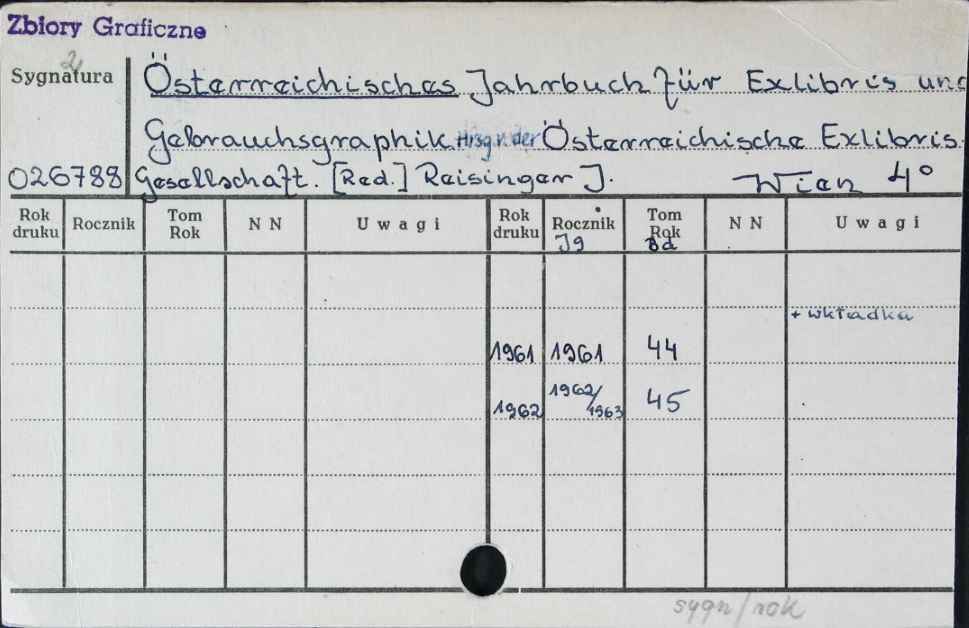 Zbiory Graficzne
Sygnatura
Österreichisches Jahrbuch für Exlibris und
Gebrauchsgraphik. Hrsg. v. der Österreichische Exlibris-
026788 Gesellschaft. [Red.] Reisinger J. Wien 4°
Rok druku Rocznik Tom Rok N N Uwagi Rok druku Rocznik Tom Rok N N Uwagi
Jg Bd
+ wkładka
1961 1961 44
1962 1962/1963 45
sygn/rok